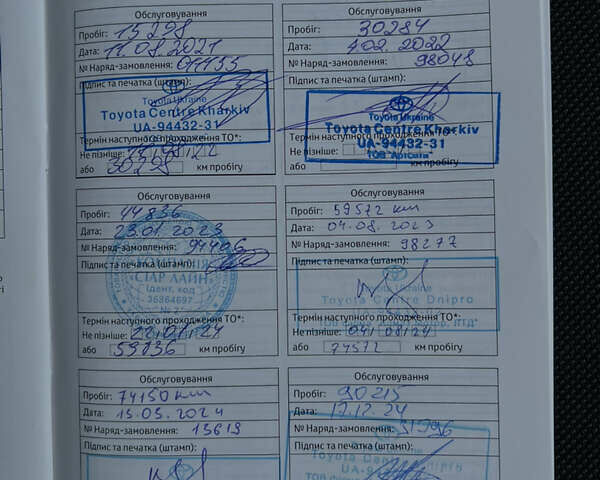 Обслуговування
Пробіг: 15298
Дата: 11.08.2021
№ Наряд-замовлення:
Підпис та печатка (штамп):
Toyota Ukraine
Toyota Centre Kharkiv
UA-94432-31
Термін наступного проходження ТО*:
Не пізніше:
або 30298 км пробігу
Обслуговування
Пробіг: 30284
Дата: 4.02.2022
№ Наряд-замовлення: 98048
Підпис та печатка (штамп):
Toyota Ukraine
Toyota Centre Kharkiv
UA-94432-31
ТОВ "АртСіті"
Термін наступного проходження ТО*:
Не пізніше:
або км пробігу
Обслуговування
Пробіг: 44836
Дата: 23.01.2023
№ Наряд-замовлення: 94406
Підпис та печатка (штамп):
"СТАР ЛАЙН"
Ідент. код
36364697
Термін наступного проходження ТО*:
Не пізніше: 22/01/24
або 59836 км пробігу
Обслуговування
Пробіг: 59572 km
Дата: 04.08.2023
№ Наряд-замовлення: 98277
Підпис та печатка (штамп):
Toyota Ukraine
Toyota Centre Dnipro
Термін наступного проходження ТО*:
Не пізніше: 04/08/24
або 74572 км пробігу
Обслуговування
Пробіг: 74150 km
Дата: 15.05.2024
№ Наряд-замовлення: 13619
Підпис та печатка (штамп):
Обслуговування
Пробіг: 90215
Дата: 12.12.24
№ Наряд-замовлення: 31996
Підпис та печатка (штамп):